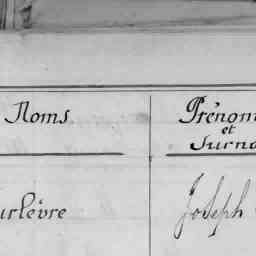 Noms
Prénom
et
Surno
urlèvre
Joseph